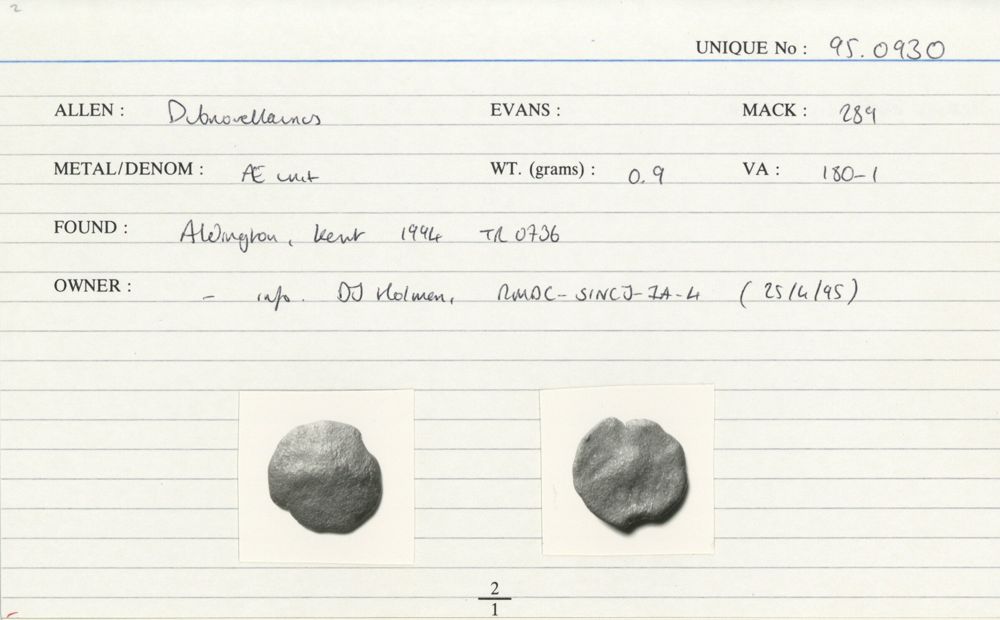 2
UNIQUE No : 95.0930
ALLEN : Dubnovellaunus EVANS : MACK : 289
METAL/DENOM : Æ unit WT. (grams) : 0.9 VA : 180-1
FOUND : Aldington, Kent 1994 TR 0736
OWNER : - info. DJ Holmen, (25/4/95)
2
1